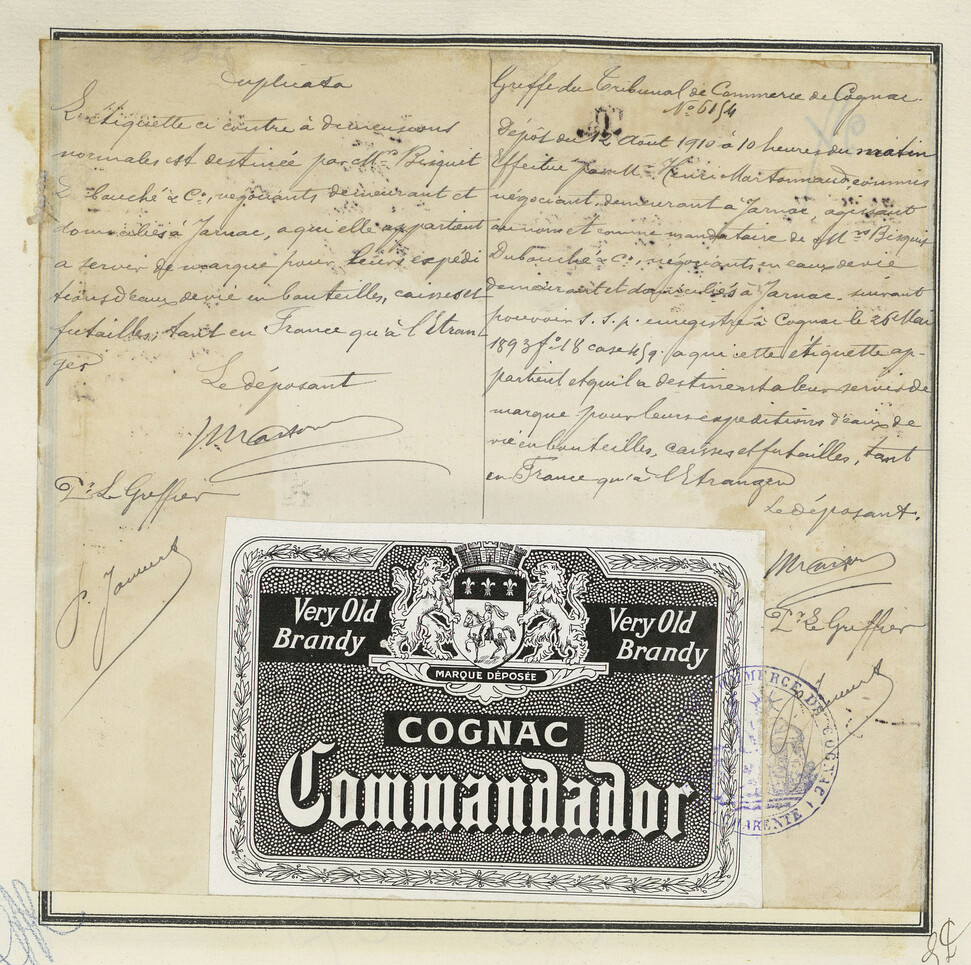 Duplicata
L'étiquette ci contre à dimensions
normales est destinée par Mrs Bisquit
Dubouché & Co, négociants demeurant et
domiciliés à Jarnac, à qui elle appartient
à servir de marque pour leurs expédi
tions d'eaux de vie en bouteilles, caisses et
futailles, tant en France qu'à l'Etran-
ger
Le déposant
Pr Le Greffier
Greffe du Tribunal de Commerce de Cognac.
No 6154
Dépôt du 12 Août 1910 à 10 heures du matin
Effectué par Mr Henri Martonnaud, commis
négociant, demeurant à Jarnac, agissant
au nom et comme mandataire de Mrs Bisquit
Dubouché & Co, négociants en eaux de vie
demeurant et domiciliés à Jarnac, suivant
pouvoir s.s.p. enregistré à Cognac le 26 Mai
1893 fo 18 case 459. à qui cette étiquette ap-
partient et qu'il a destinent à leur servir de
marque pour leurs expéditions d'eaux de
vie en bouteilles, caisses et futailles, tant
en France qu'à l'Etranger
Le déposant.
Pr Le Greffier
Very Old
Brandy
Very Old
Brandy
MARQUE DÉPOSÉE
COGNAC
Commandador
COMMERCE DE COGNAC
CHARENTE